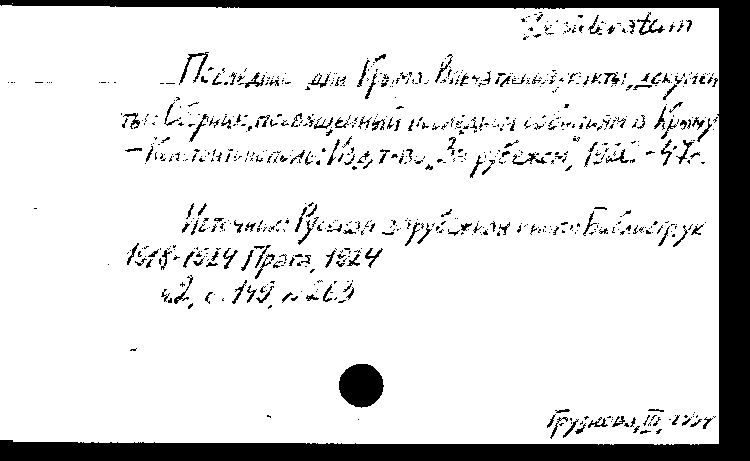 Desideratum
Последние дни Крыма. Впечатления, факты, докумен
ты: Сборник, посвященный последним событиям в Крыму
– Константинополь: Изд. т-во „За рубежом", 1920 – 47 с.
Источник: Русская зарубежная книга: Библиогр. ук
1918-1924 Прага, 1924
ч. 2, с. 149, № 263
III,